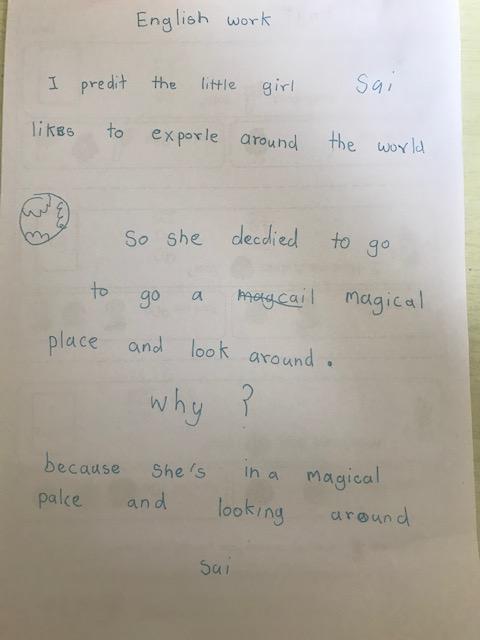 English work
I predit the little girl Sai
likes to exporle around the world
So she decdied to go
to go a magcail magical
place and look around.
why ?
because she's in a magical
palce and looking around
Sai